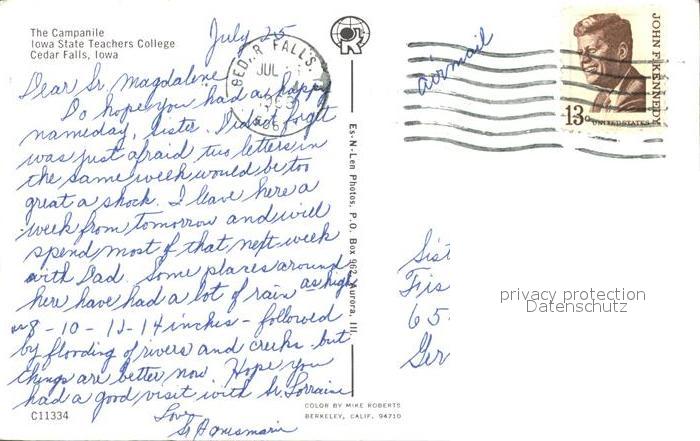 The Campanile
Iowa State Teachers College
Cedar Falls, Iowa
July 25
Dear Sr. Magdalene
Do hope you had a happy
nameday, sister. Didn't forget
was just afraid two letters in
the same week would be too
great a shock. I leave here a
week from tomorrow and will
spend most of that next week
with Dad. Some places around
here have had a lot of rain as high
8-10-12-14 inches - followed
by flooding of rivers and creeks - but
things are better now. Hope you
had a good visit with Sr. Lorraine
Love
Sr Agnesmarie
C11334
CEDAR FALLS, IA
JUL
Es-N-Len Photos, P.O. Box 962, Aurora, Ill.
COLOR BY MIKE ROBERTS
BERKELEY, CALIF. 94710
airmail
JOHN F. KENNEDY
13c
UNITED STATES
Sist
Fis
65
Ger
privacy protection
Datenschutz